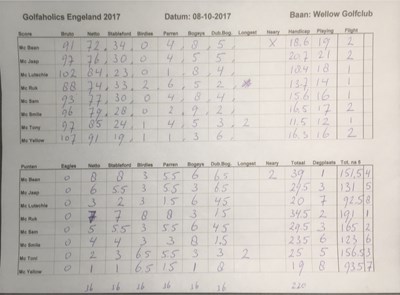 Golfaholics Engeland 2017 Datum: 08-10-2017 Baan: Wellow Golfclub
Score Bruto Netto Stableford Birdies Parren Bogeys Dub.Bog. Longest Neary Handicap Playing Flight
Mc Bean 91 72 34 0 4 8 5 X 18,6 19 2
Mc Jaap 97 76 30 0 4 5 5 20,7 21 2
Mc Lutschie 102 84 23 0 1 8 4 18,4 18 1
Mc Ruk 88 74 33 2 6 5 2 13,7 14 1
Mc Sam 93 77 30 0 4 8 4 15,6 16 1
Mc Smile 96 79 28 0 2 9 2 16,5 17 2
Mc Tony 97 85 24 1 4 5 3 2 11,5 12 1
Mc Yellow 107 91 19 1 1 3 6 16,3 16 2
Punten Eagles Netto Stableford Birdies Parren Bogeys Dub.Bog. Longest Neary Totaal Dagplaats Tot. na 5
Mc Bean 0 8 8 3 5.5 6 6.5 2 39 1 151,5 4
Mc Jaap 0 6 5.5 3 5.5 3 6.5 29,5 3 131 5
Mc Lutschie 0 3 2 3 1.5 6 4.5 20 7 92.5 8
Mc Ruk 0 7 7 8 8 3 1.5 34,5 2 191 1
Mc Sam 0 5 5.5 3 5.5 6 4.5 29,5 3 165 2
Mc Smile 0 4 4 3 3 8 1.5 23,5 6 123 6
Mc Toni 0 2 3 6.5 5.5 3 3 2 25 5 156.5 3
Mc Yellow 0 1 1 6.5 1.5 1 8 19 8 93.5 7
36 36 36 36 36 36 220